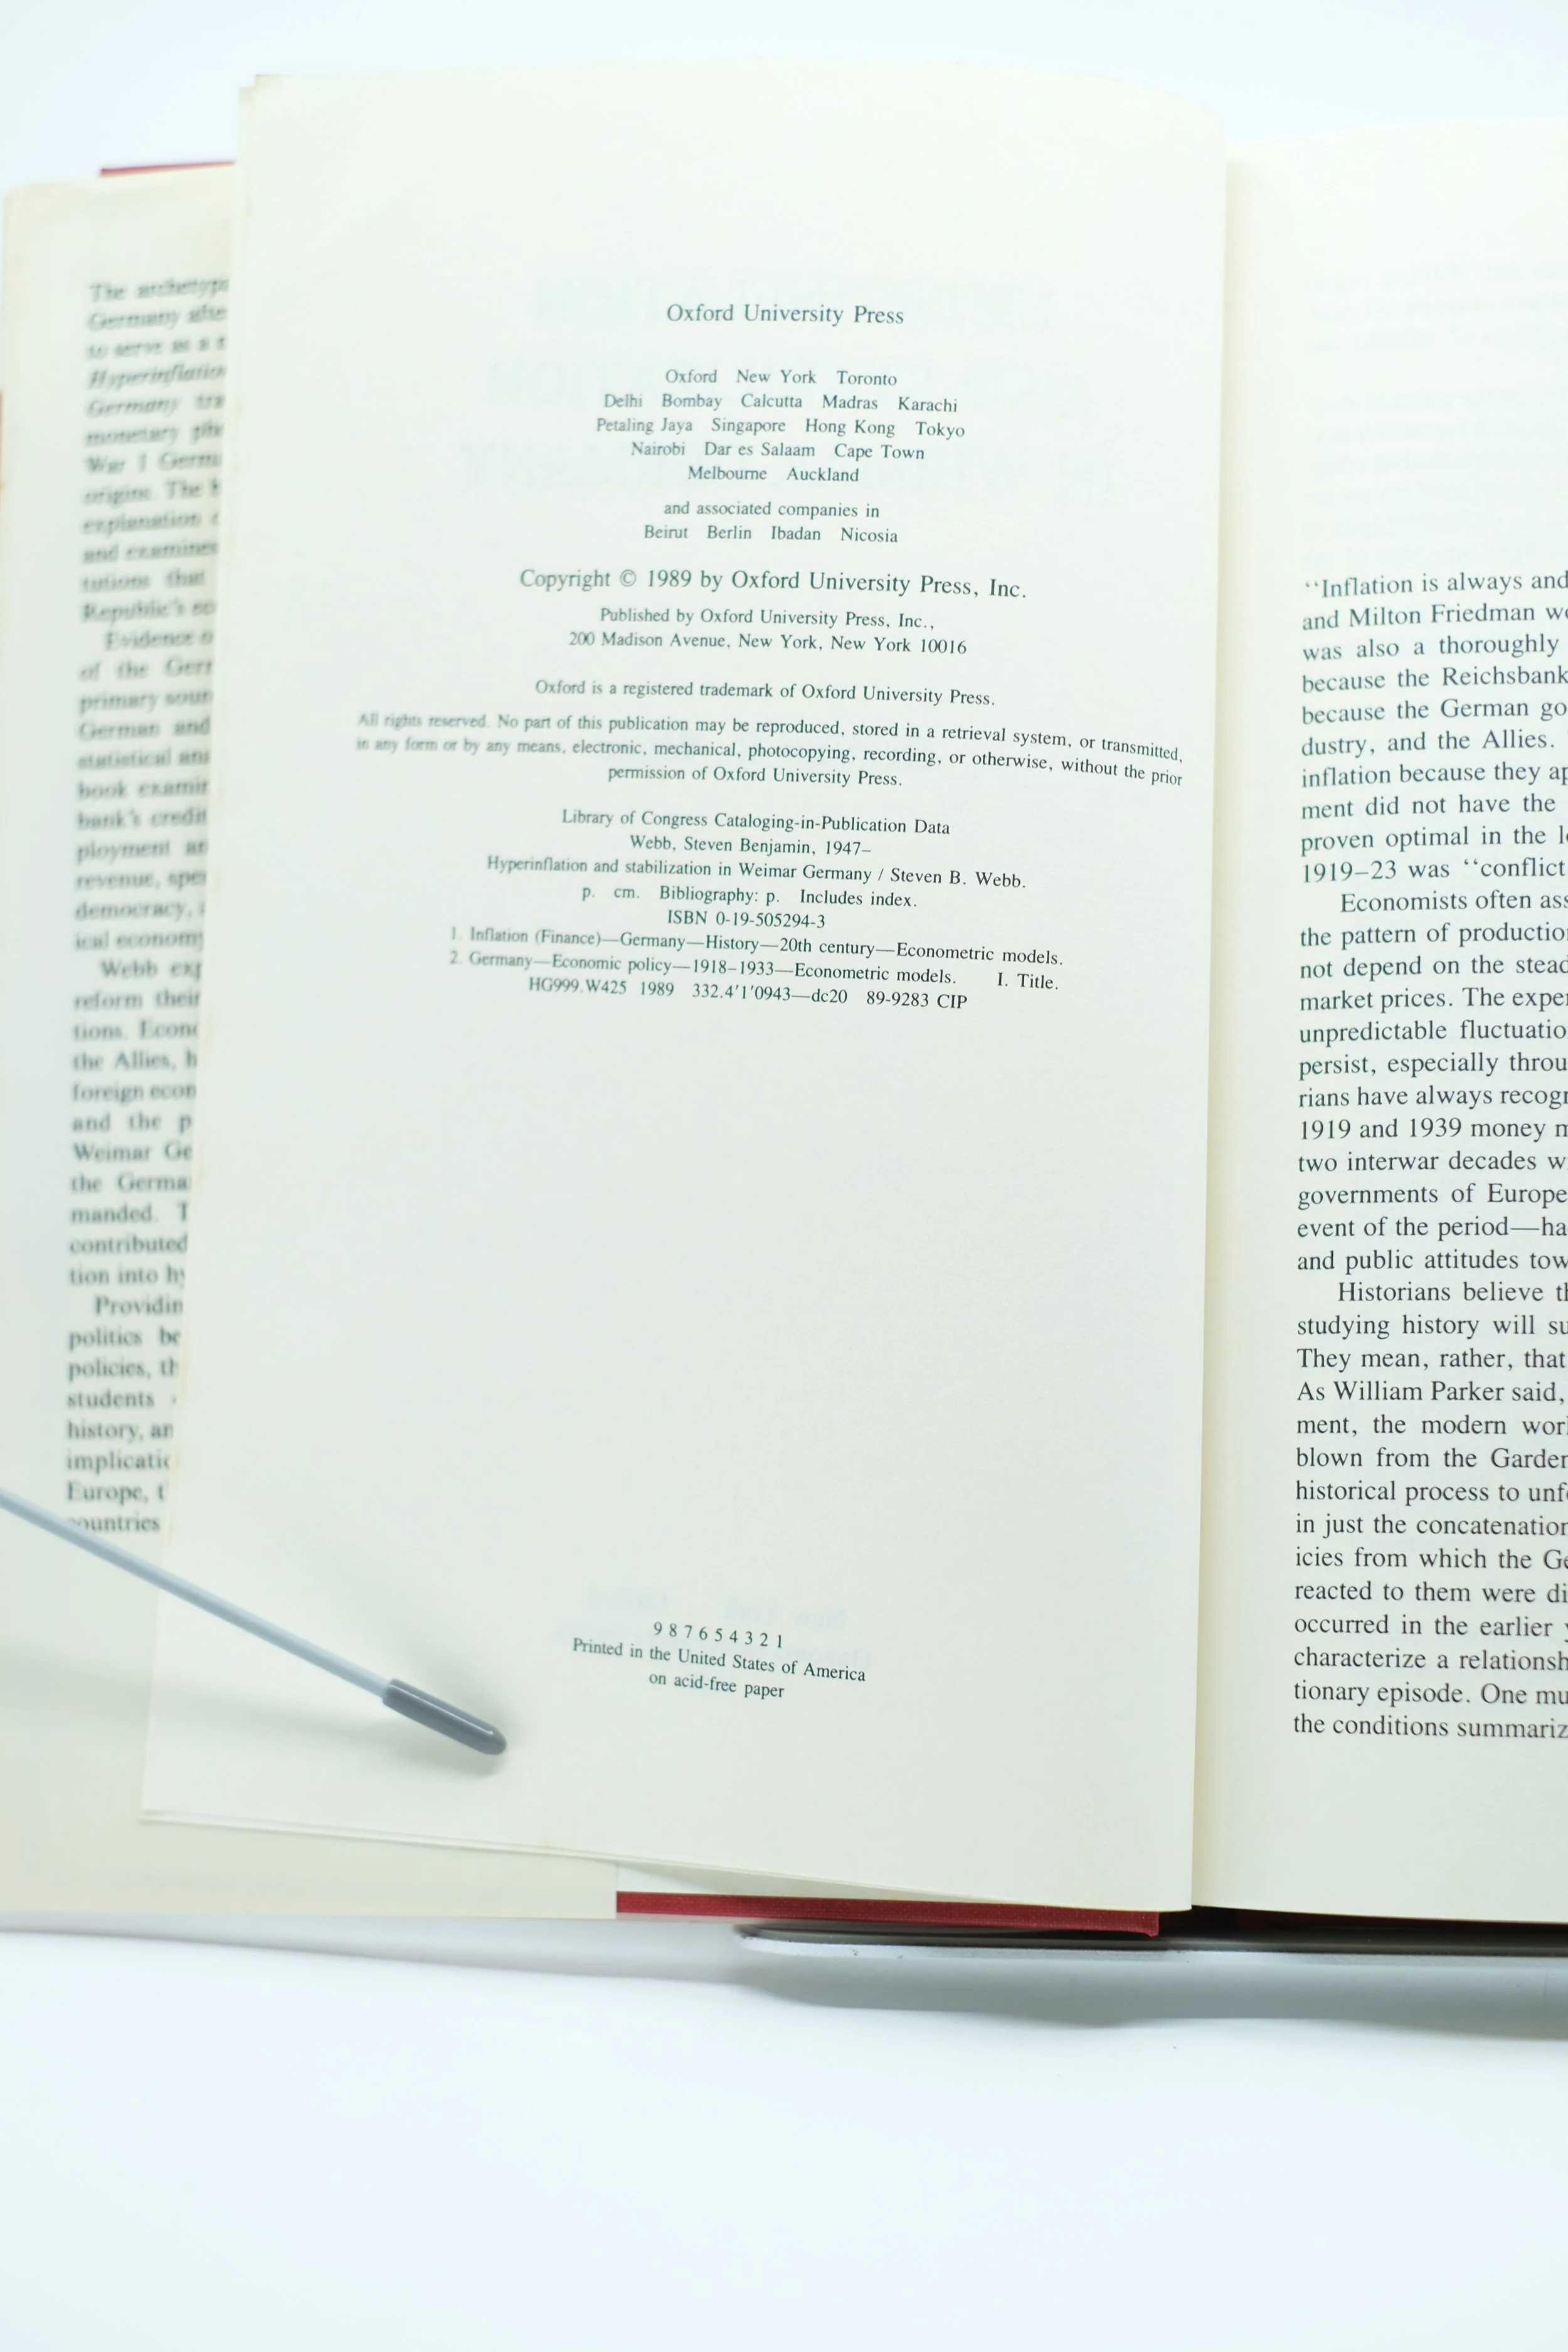 The archetyp
Germany afte
to serve as a
Hyperinflatio
Germany tra
monetary
War I Germ
origins. The
explanation
and examines
tutions that
Republic's
Evidence
of the Ger
primary sour
German and
statistical
book examin
bank's credit
ployment
revenue, spe
democracy,
ical economy
Webb exp
reform their
tions. Econo
the Allies, b
foreign econ
and the p
Weimar Ge
the Germa
manded. T
contributed
tion into hy
Providin
politics be
policies, th
students
history, an
implicatio
Europe, t
countries
Oxford University Press
Oxford New York Toronto
Delhi Bombay Calcutta Madras Karachi
Petaling Jaya Singapore Hong Kong Tokyo
Nairobi Dar es Salaam Cape Town
Melbourne Auckland
and associated companies in
Beirut Berlin Ibadan Nicosia
Copyright © 1989 by Oxford University Press, Inc.
Published by Oxford University Press, Inc.,
200 Madison Avenue, New York, New York 10016
Oxford is a registered trademark of Oxford University Press.
All rights reserved. No part of this publication may be reproduced, stored in a retrieval system, or transmitted,
in any form or by any means, electronic, mechanical, photocopying, recording, or otherwise, without the prior
permission of Oxford University Press.
Library of Congress Cataloging-in-Publication Data
Webb, Steven Benjamin, 1947–
Hyperinflation and stabilization in Weimar Germany / Steven B. Webb.
p. cm. Bibliography: p. Includes index.
ISBN 0-19-505294-3
1. Inflation (Finance)—Germany—History—20th century—Econometric models.
2. Germany—Economic policy—1918–1933—Econometric models. I. Title.
HG999.W425 1989 332.4′1′0943—dc20 89-9283 CIP
9 8 7 6 5 4 3 2 1
Printed in the United States of America
on acid-free paper
“Inflation is always and
and Milton Friedman wo
was also a thoroughly
because the Reichsbank
because the German go
dustry, and the Allies.
inflation because they ap
ment did not have the
proven optimal in the lo
1919–23 was “conflict
Economists often ass
the pattern of productio
not depend on the stead
market prices. The exper
unpredictable fluctuatio
persist, especially throu
rians have always recogn
1919 and 1939 money m
two interwar decades w
governments of Europe
event of the period—ha
and public attitudes tow
Historians believe th
studying history will su
They mean, rather, that
As William Parker said,
ment, the modern worl
blown from the Garden
historical process to unf
in just the concatenation
icies from which the Ge
reacted to them were di
occurred in the earlier y
characterize a relationsh
tionary episode. One mu
the conditions summariz